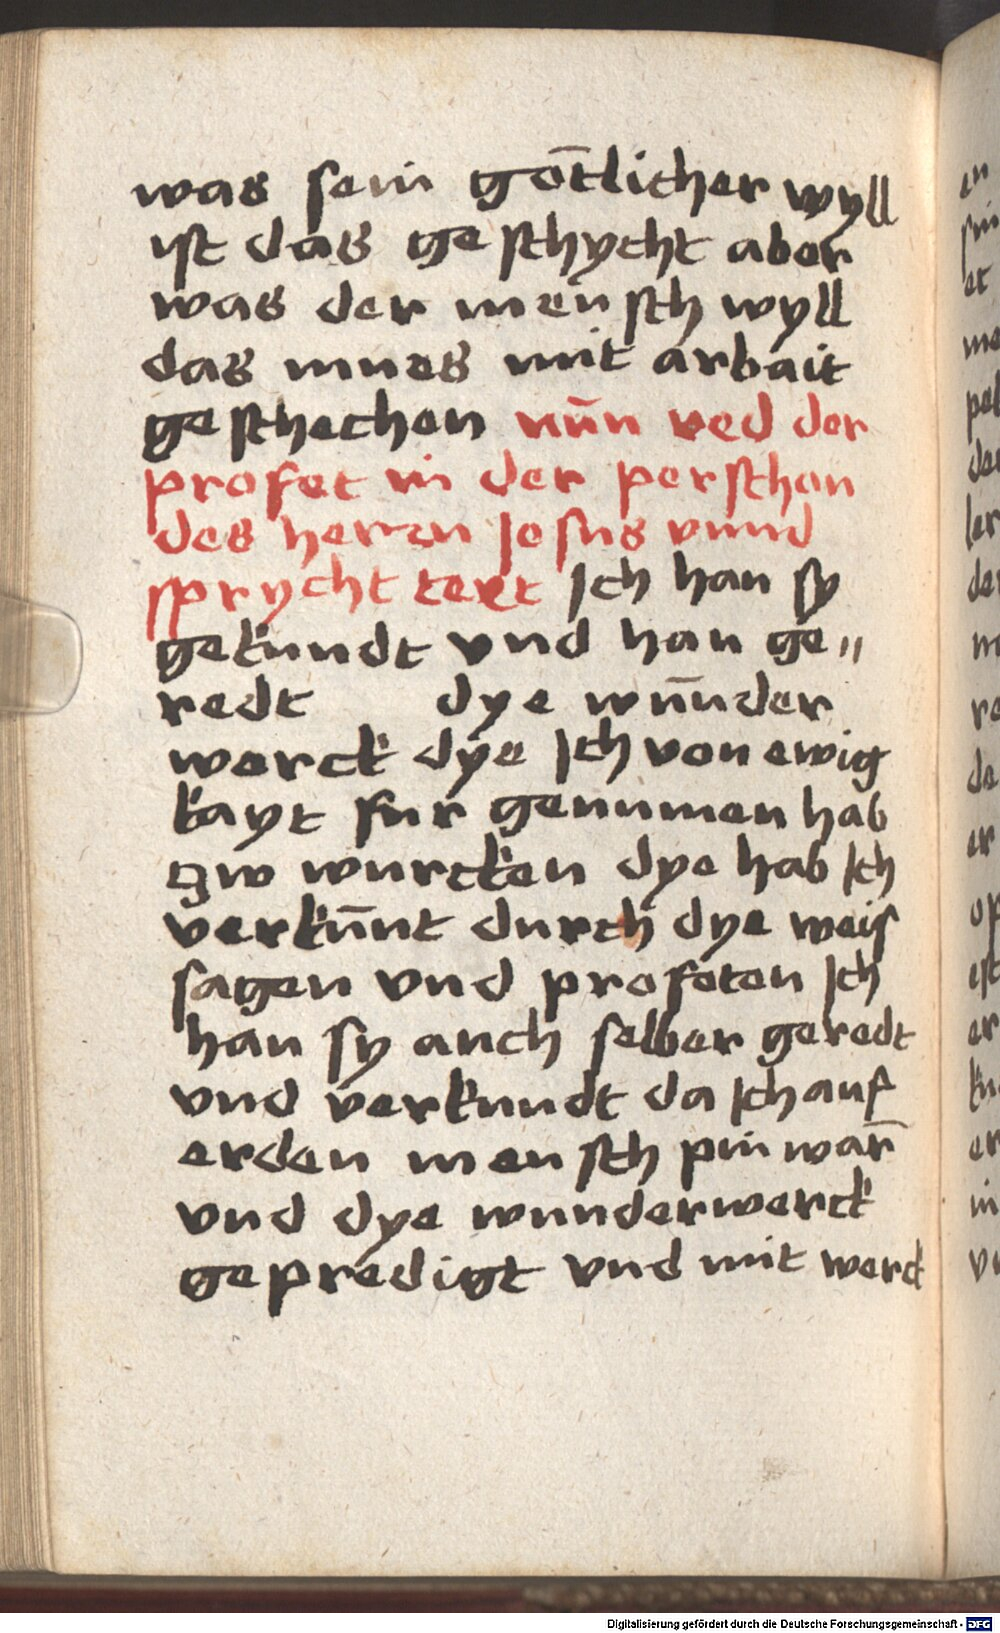 was sein gōtlicher wyll
ist das geschycht aber
was der mensch wyll
das mues mit arbait
geschechen nūn red der
profet in der perschon
des herren Jesus vnnd
sprycht text Ich han sy
gekundt vnd han ge"
redt dye wūnder
werck dye Ich von ewig
kayt fur genumen hab
zw wurcken dye hab Ich
verkūnt durch dye weis
sagen vnd profeten Ich
han sy auch selber geredt
vnd verkundt da Ich auf
erden mensch pin war̄
vnd dye wunderwerck
gepredigt vnd mit werck
Digitalisierung gefördert durch die Deutsche Forschungsgemeinschaft - DFG